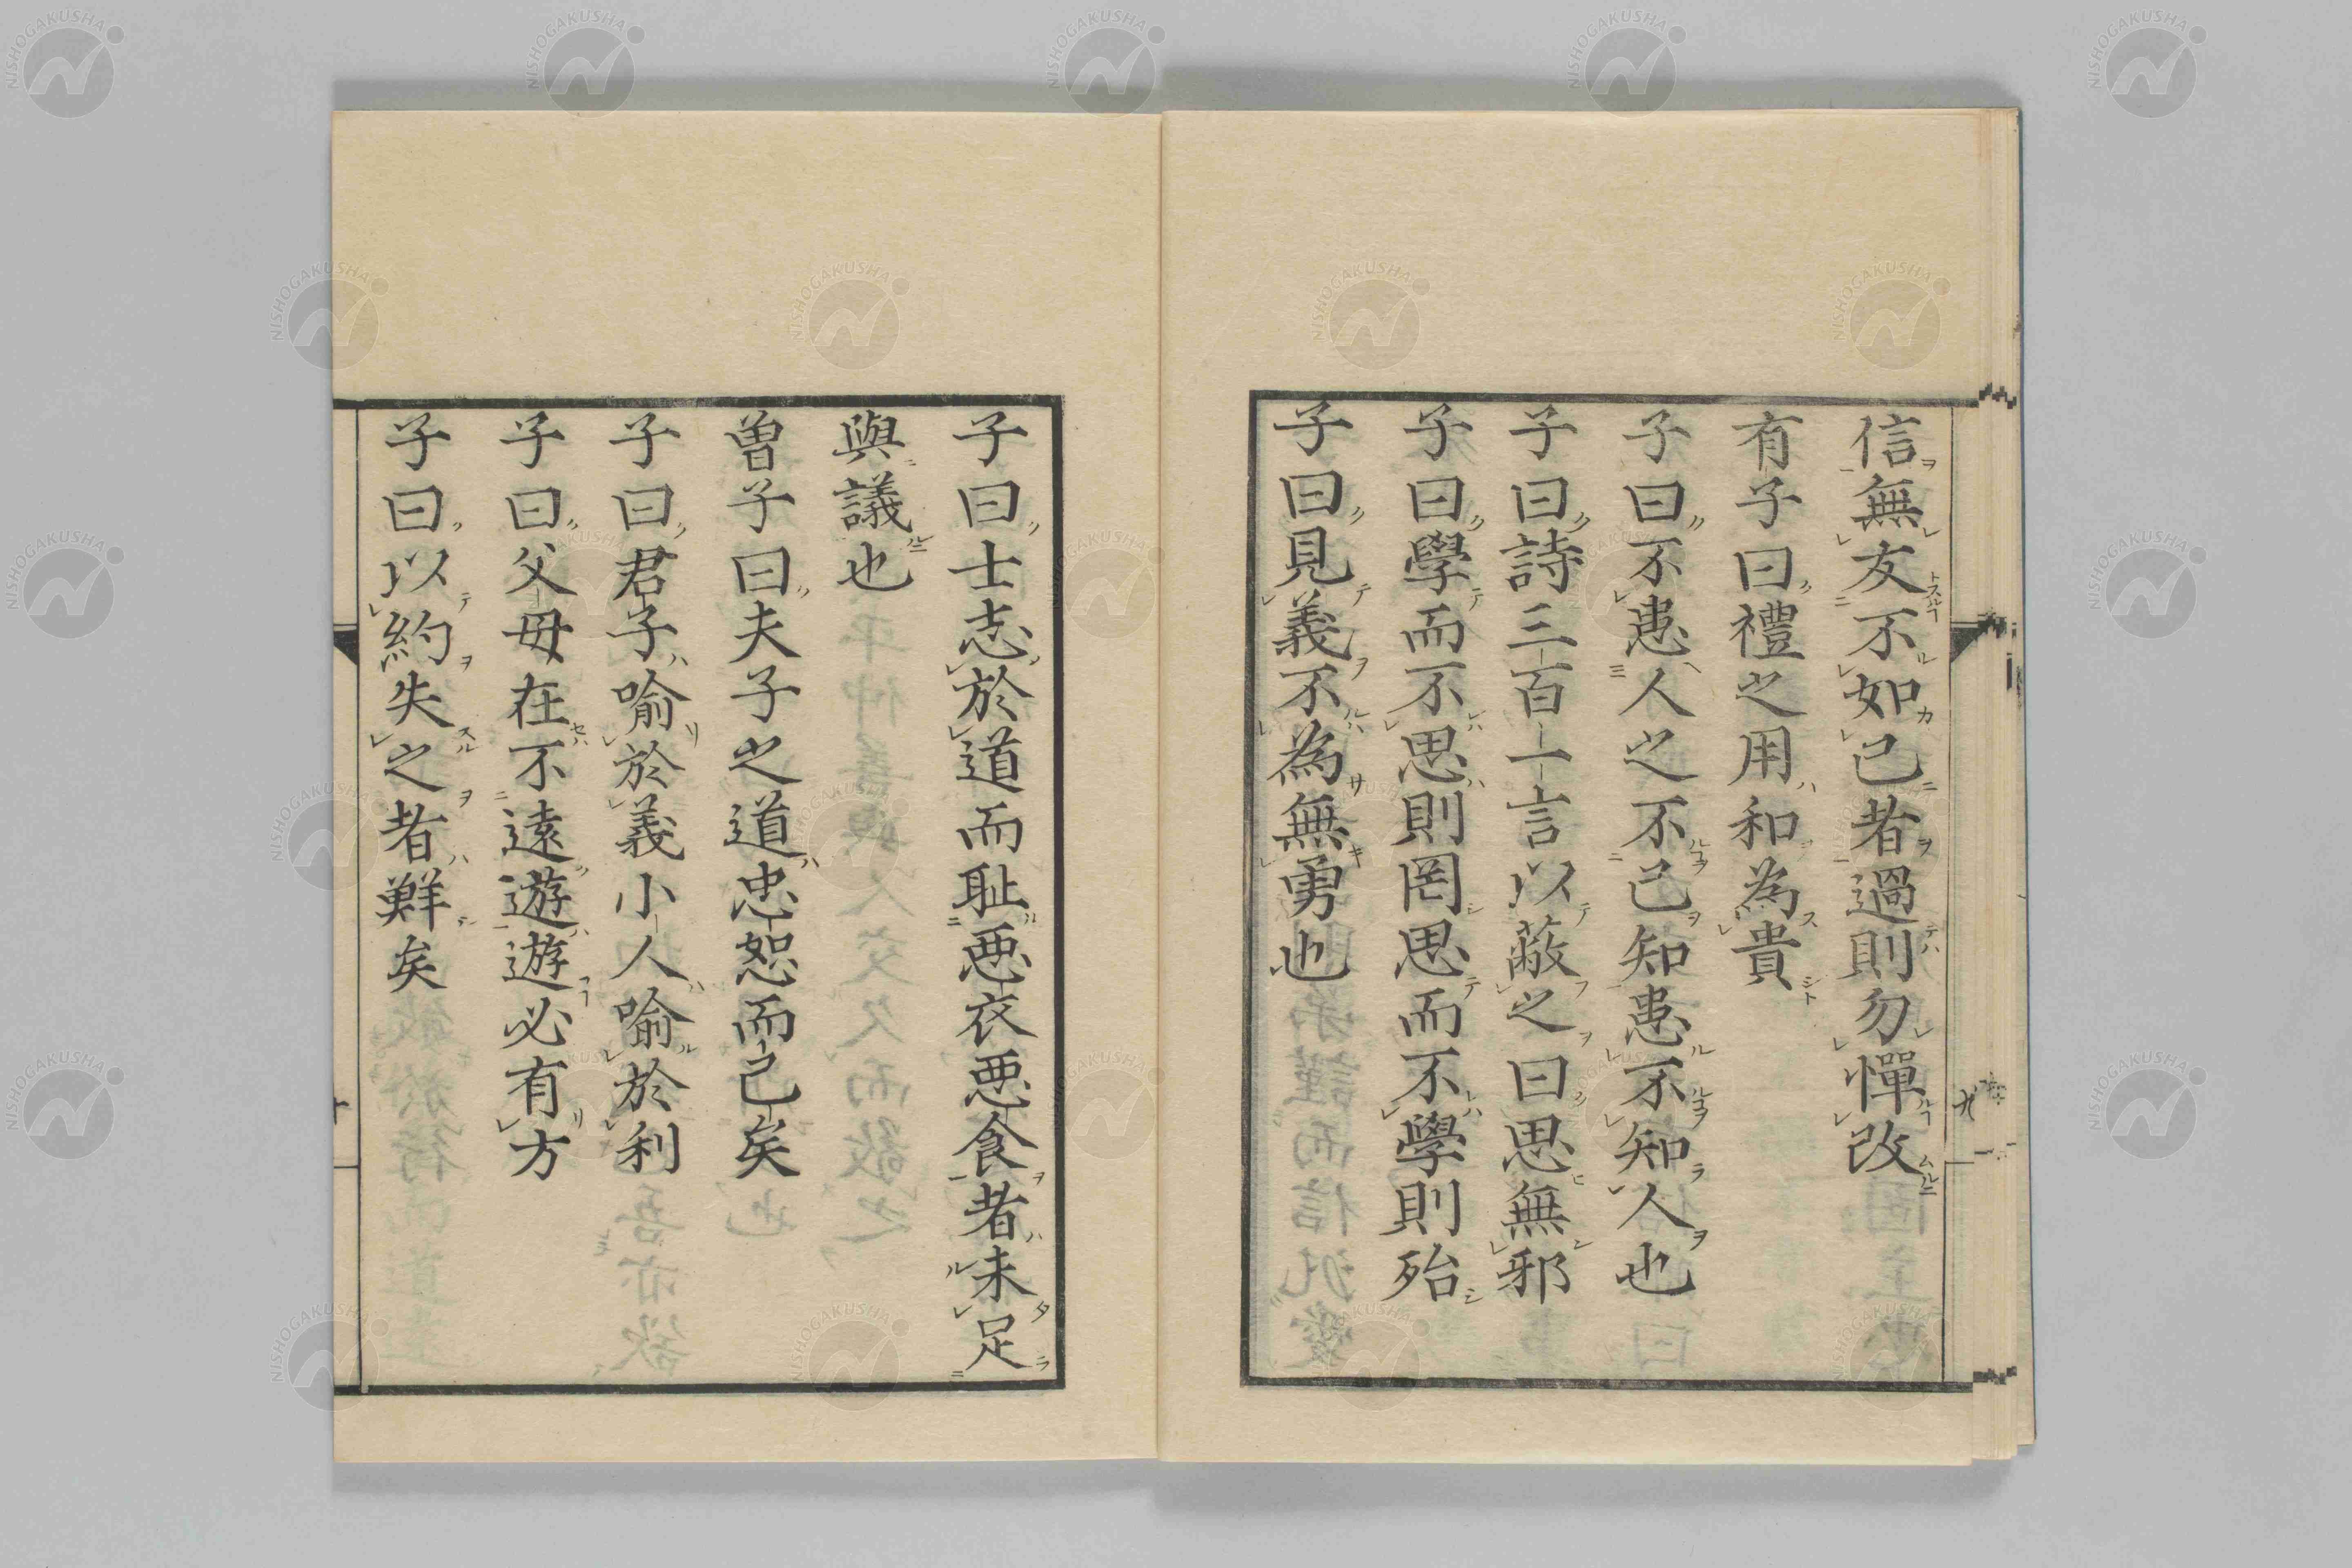 信無友不如己者過則勿憚改
有子曰禮之用和為貴
子曰不患人之不己知患不知人也
子曰詩三百一言以蔽之曰思無邪
子曰學而不思則罔思而不學則殆
子曰見義不為無勇也
九
子曰士志於道而恥惡衣惡食者未足
與議也
曽子曰夫子之道忠恕而已矣
子曰君子喻於義小人喻於利
子曰父母在不遠遊遊必有方
子曰以約失之者鮮矣
NISHOGAKUSHA